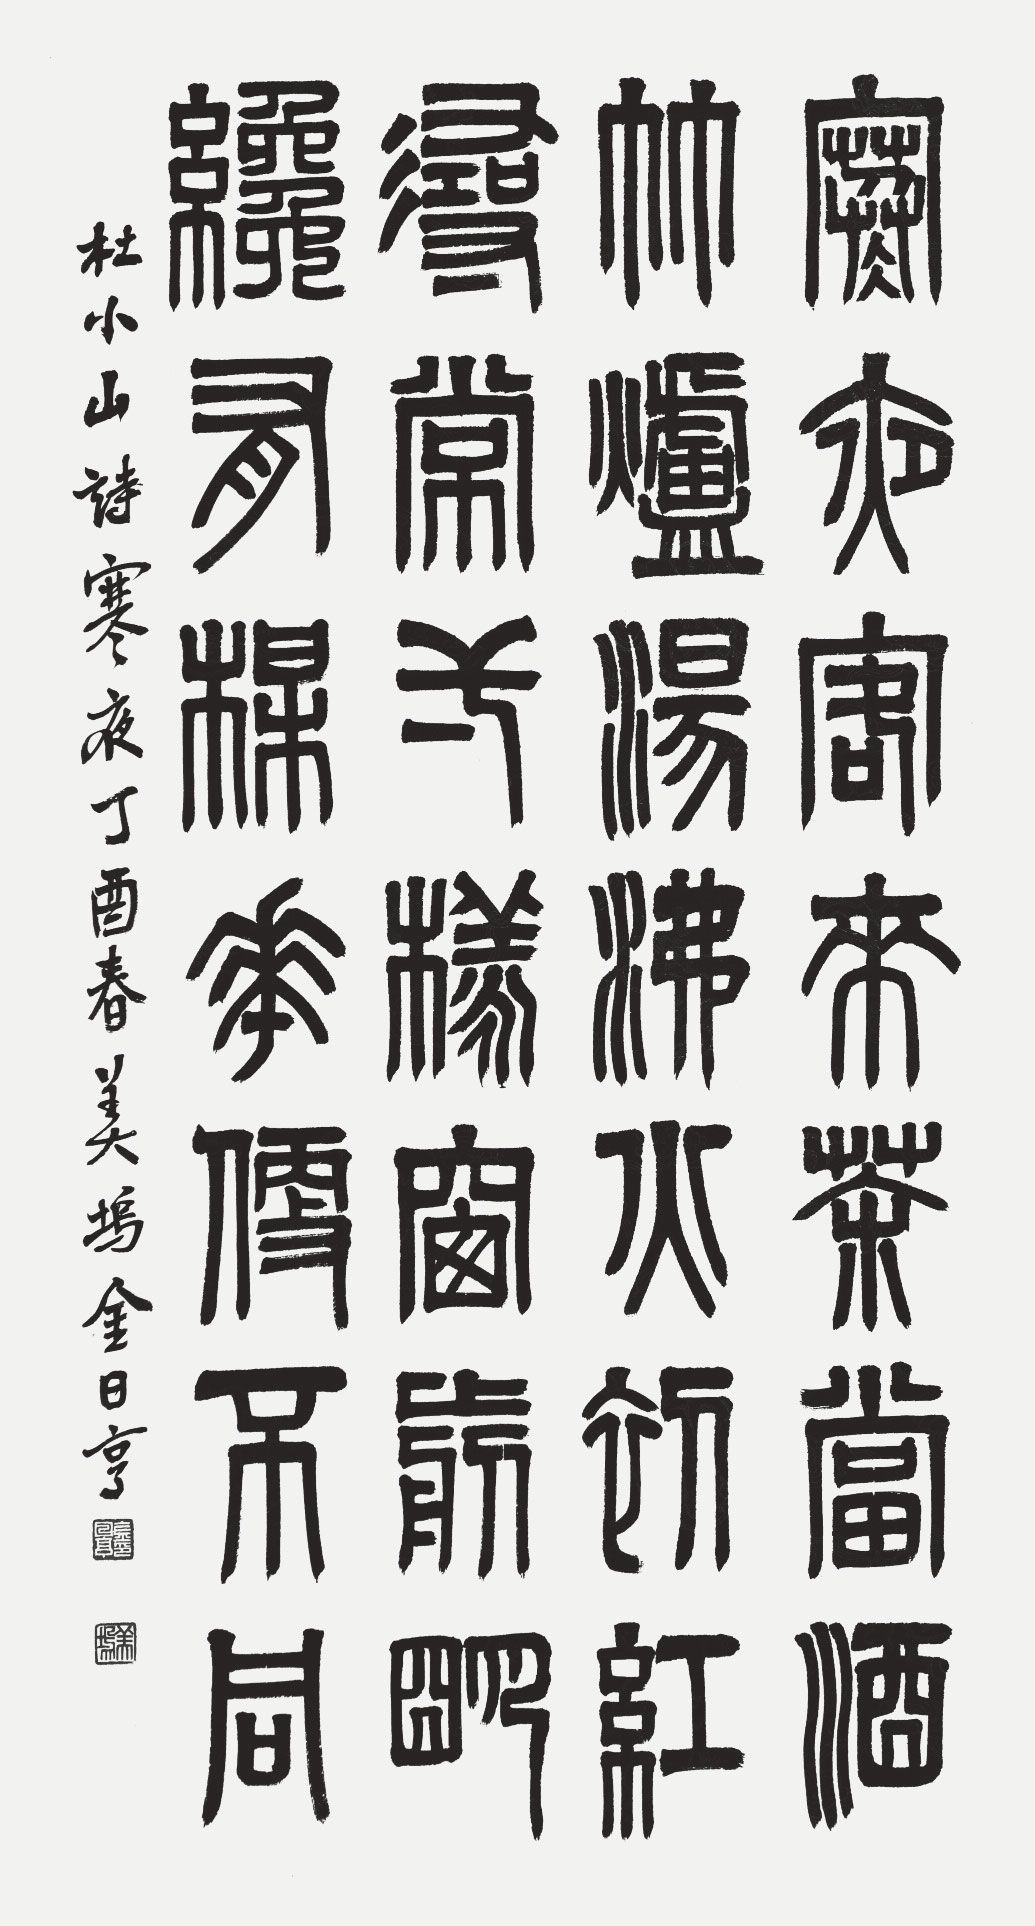 寒夜客來茶當酒
竹爐湯沸火初紅
尋常一樣窗前明
纔有楳花便不同
杜小山詩寒夜丁酉春美塢金日亨
美塢